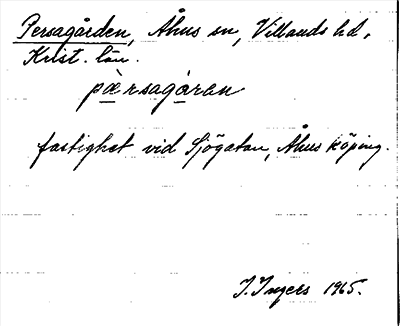 Persagården, Åhus sn, Villands hd,
Krist. län.
pæ̀rsagåran
fastighet vid Sjögatan, Åhus köping.
I. Ingers 1965.